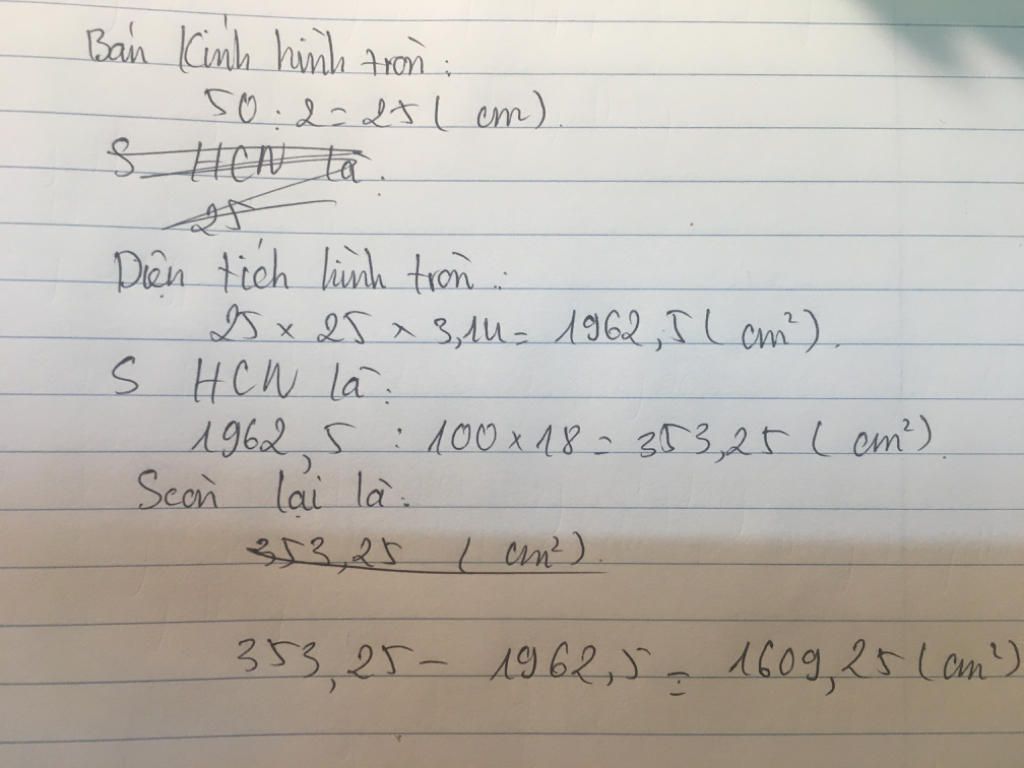 Bán kính hình tròn:
50 : 2 = 25 ( cm)
S HCN là.
25
Diện tích hình tròn:
25 x 25 x 3,14 = 1962,5 ( cm²).
S HCN là:
1962,5 : 100 x 18 = 353,25 ( cm²).
S còn lại là:
353,25 ( cm²).
353,25 - 1962,5 = 1609,25 (cm²)